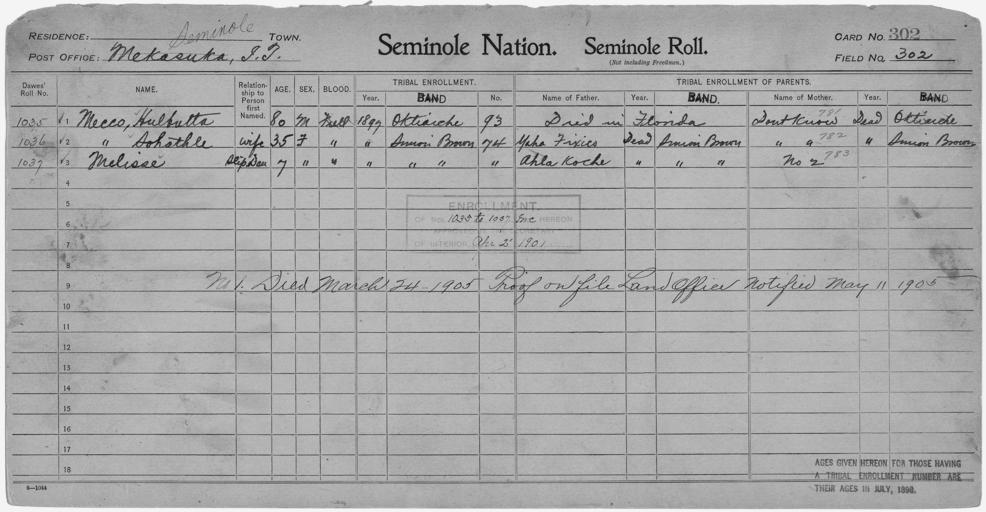 RESIDENCE: Seminole TOWN.
POST OFFICE: Mekasuka, I.T.
Seminole Nation. Seminole Roll.
(Not including Freedmen.)
CARD NO. 302
FIELD NO. 302
Dawes' Roll No. NAME. Relationship to Person first Named. AGE. SEX. BLOOD. TRIBAL ENROLLMENT. TRIBAL ENROLLMENT OF PARENTS.
Year. BAND No. Name of Father. Year. BAND. Name of Mother. Year. BAND
1035 1 Mecco, Hulbutta 80 M Full 1897 Ottiarche 93 Died in Florida Dont Know Dead Ottiarche
1036 2 " Sohothle wife 35 F " " Simon Brown 74 Yaha Fixico Dead Simon Brown " " 782 " Simon Brown
1037 3 Melisse Step Dau 7 " " " " " " Ahla Koche " " " No 2 783
4
5
6
7
8
9
10
11
12
13
14
15
16
17
18
ENROLLMENT.
OF NOS. 1035 to 1037 Inc HEREON
APPROVED BY THE SECRETARY
OF INTERIOR Apr 2 1901
No 1. Died March 24-1905 Proof on file Land Office Notified May 11 1905
AGES GIVEN HEREON FOR THOSE HAVING
A TRIBAL ENROLLMENT NUMBER ARE
THEIR AGES IN JULY, 1898.
6—1044